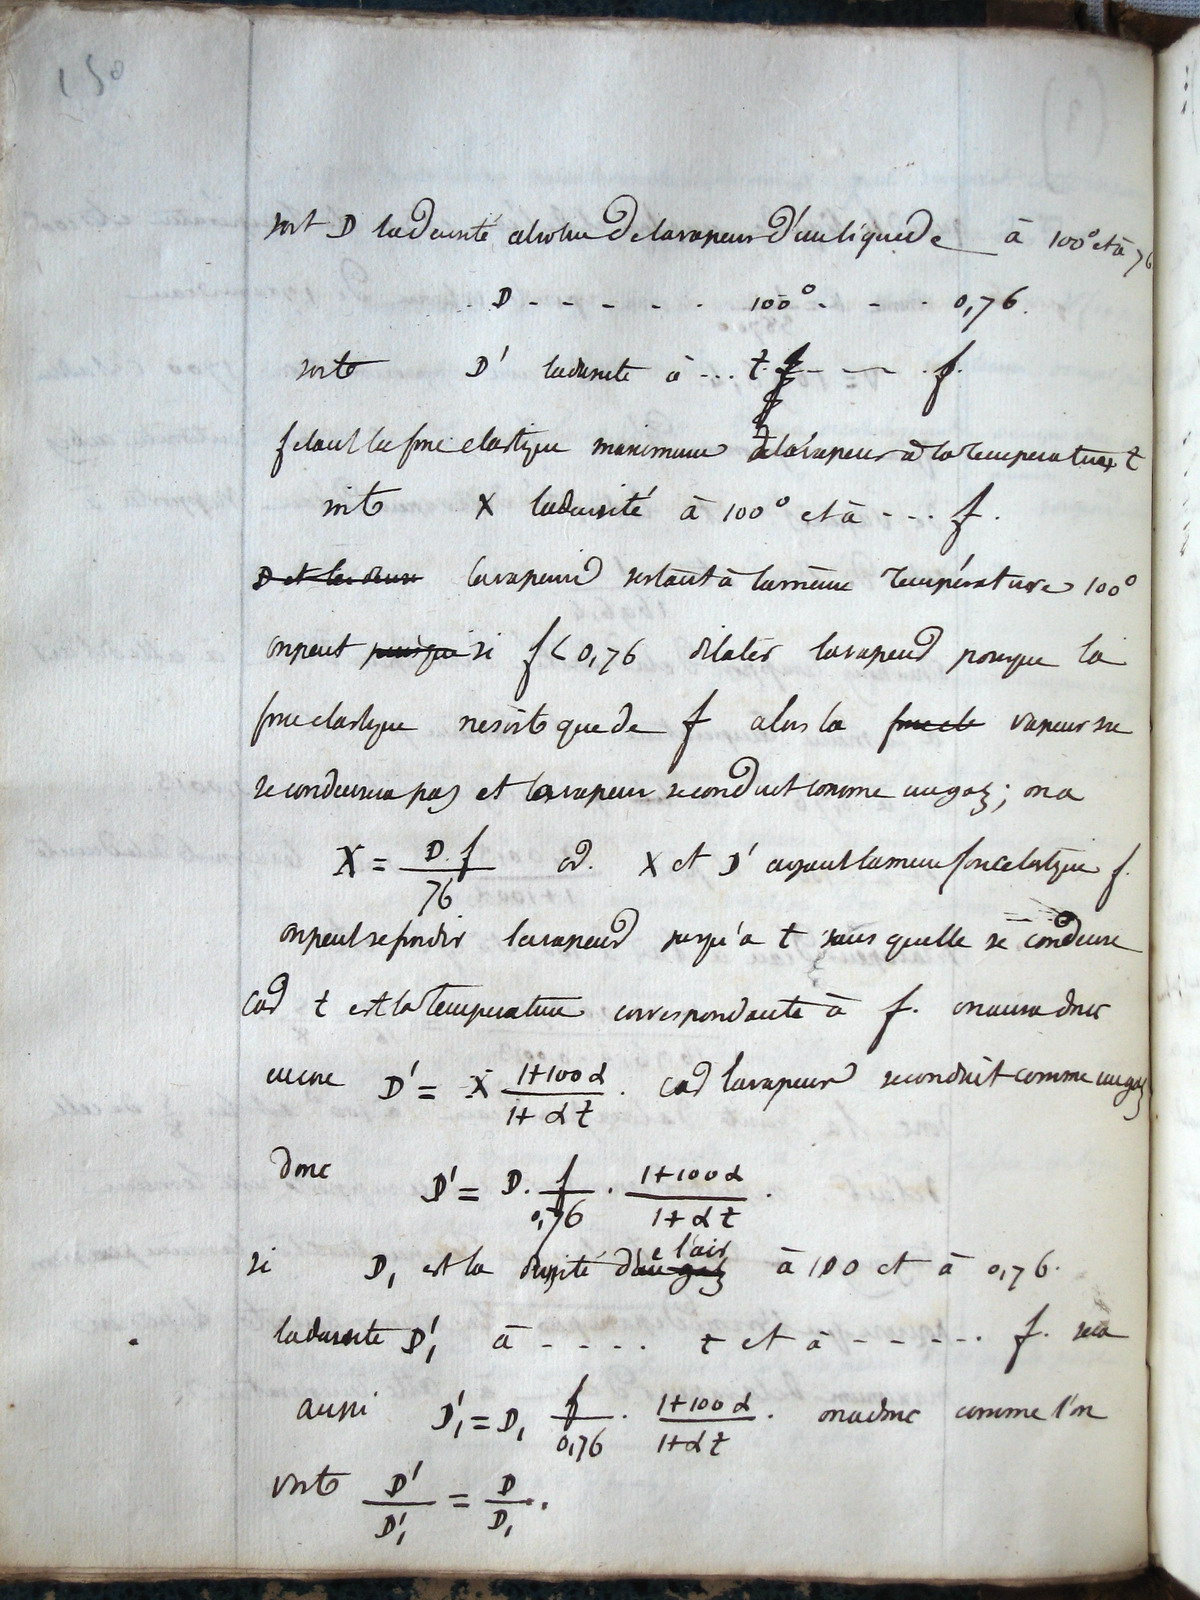 150
soit D la densité absolue de la vapeur d'un liquide à 100° et à 76
D - - - - - - 100° - - - 0,76.
soit D' la densité à ... t. - - - f.
f étant la force élastique maximum de la vapeur à la température t
soit X la densité à 100° et à - - - f.
D et les deux la vapeur restant à la même température 100°
on peut puisque si f < 0,76 dilater la vapeur pour que la
force élastique ne soit que de f alors la force el vapeur ne
se condensera pas et la vapeur se conduit comme un gaz ; on a
X = D.f / 76 or. X et D' ayant la même force élastique f.
on peut refroidir la vapeur jusqu'à t sans quelle se condense
car t est la température correspondante à f. on aura donc
encore D' = X (1+100α) / (1+αt) . car la vapeur se conduit comme un gaz
donc D' = D. f / 0,76 . (1+100α) / (1+αt) .
si D, est la densité de l'air d'un gaz à 100 et à 0,76.
la densité D', à - - - - t et à - - - - - f. sera
aussi D', = D, f / 0,76 . (1+100α) / (1+αt) . on a donc comme l'on
voit D' / D', = D / D, .